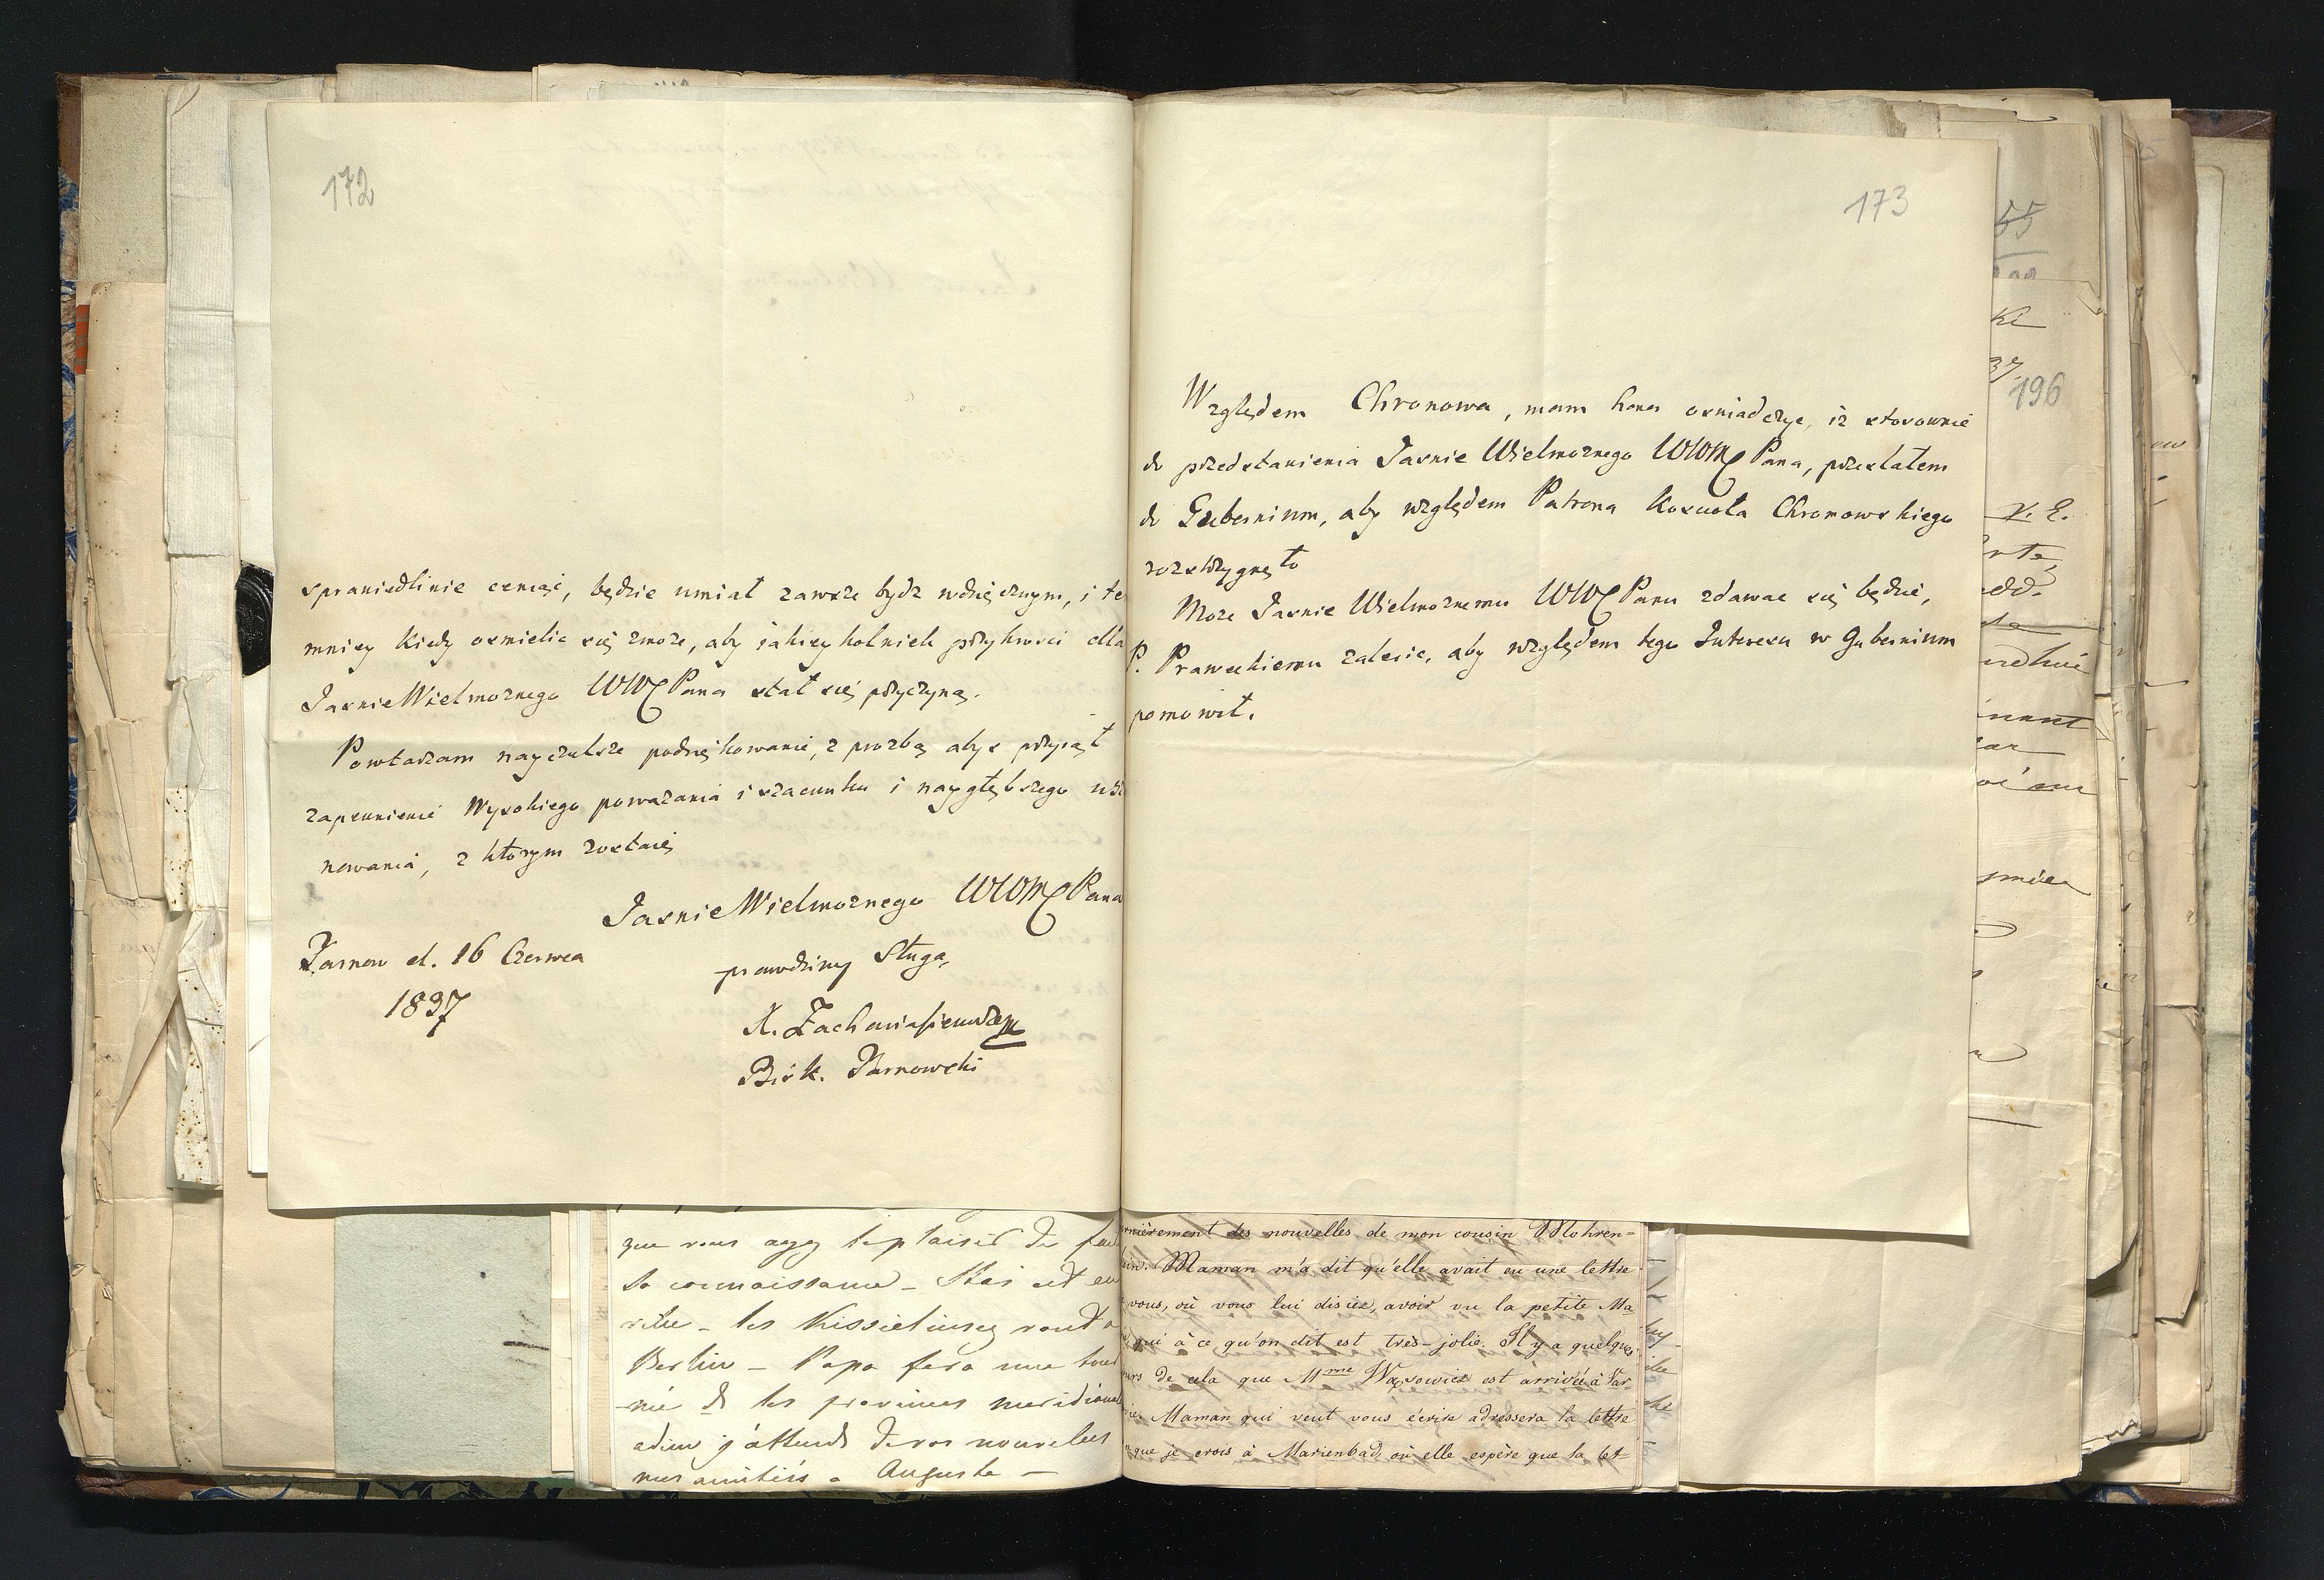 172
sprawiedliwie ceniąć, będzie umiał zawsze bydz wdzięcznym, i te
mniey kiedy osmielic się zmoże, aby jakieykolwiek przykrosci dla
JasnieWielmoznego WWPana stał się przyczyną.
Powtarzam nayczulsze podziękowanie, z prozbą abys przyiął
zapewnienie Wysokiego poważania i szacunku i naygłębszego usza
nowania, z którym zostaię
JasnieWielmoznego WWMPana
prawdziwy Sługa,
Tarnow d. 16 Czerwca
1837
X. Zachariasiewicz
Bisk. Tarnowski
173
Względem Chronowa, mam honor oswiadczyc, iż stosownie
do przedstawienia Jasnie Wielmoznego WWMPana, przesłałem
do Gubernium, aby względem Patrona Koscioła Chronowskiego
rozstrzygnęto
Moze Jasnie Wielmoznemu WWPanu zdawac się będzie,
P. Praweckiemu zalecic, aby względem tego Interesu w Gubernium
pomowił.
55
ki
37.
196
que vous ayez le plaisir de fai
sa connaissance – Stas est en
ville – les Kissieliwsey vont a
Berlin – Papa fera une tour
née ds les provinces meridional
adieu j'attends de vos nouvelles
mes amitiés a Auguste –
rnièrement des nouvelles de mon cousin Mohren=
Maman m'a dit qu'elle avait eu une lettre
vous, où vous lui disiez, avoir vu la petite Ma
qui à ce qu'on dit est très-jolie. Il y a quelques
urs de cela que Mme Wąsowicz est arrivée à Var-
Maman qui veut vous écrire adressera la lettre
que je crois à Marienbad, où elle espère que la let